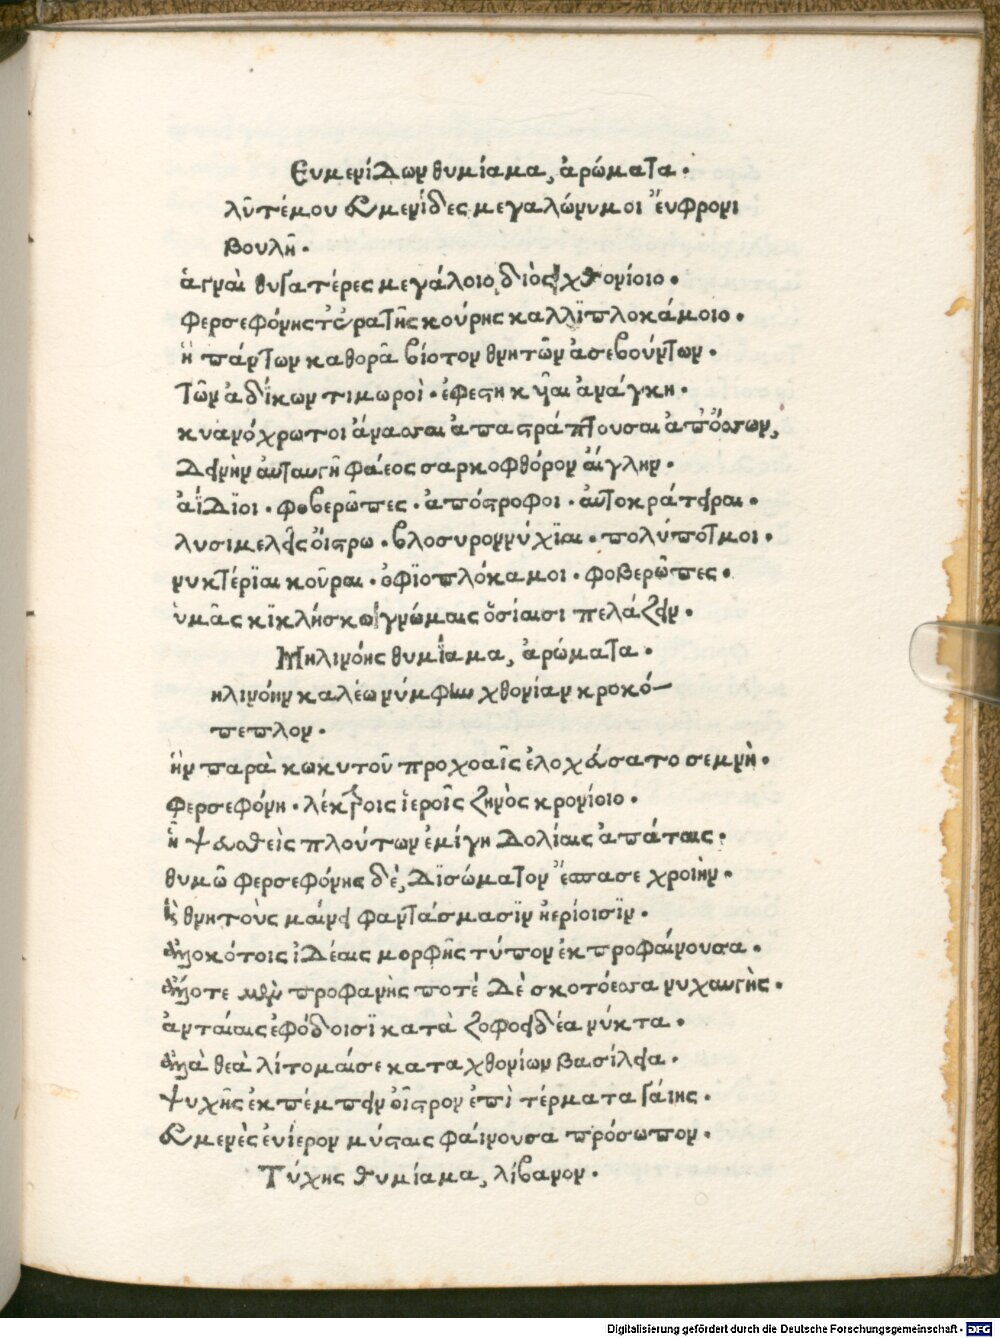 Ευμενίδων θυμίαμα, ἀρώματα.
λῦτέ μου ευμενίδες μεγαλώνυμοι εὔφρονι
βουλῆ.
ἁγναὶ θυγατέρες μεγάλοιο διὸς χθονίοιο.
φερσεφόνης τ' ἐρατῆς κούρης καλλϊπλοκάμοιο.
ἣ πάντων καθορᾶ βίοτον θνητῶν ἀσεβούντων.
τῶν ἀδίκων τιμωροὶ. ἐφεστηκυῖαι ἀνάγκη.
κυανόχρωτοι ἄνασσαι ἀπαστράπτουσαι ἀπ' ὄσσων,
δεινὴν ἀνταυγῆ φάεος σαρκοφθόρον αἴγλην.
ἀΐδϊοι. φοβερῶπες. ἀπόστροφοι. αὐτοκράτειραι.
λυσιμελεῖς οἴστρω. βλοσυρονύχϊαι. πολύποτμοι.
νυκτέρϊαι κοῦραι. ὀφϊοπλόκαμοι. φοβερῶπες.
ὑμᾶς κϊκλήσκω γνώμαις ὁσίαισι πελάζειν.
Μηλινόης θυμίαμα, ἀρώματα.
ηλινόην καλέω νύμφην χθονίαν κροκό-
πεπλον.
ἣν παρὰ κωκυτοῦ προχοαῖς ἐλοχεύσατο σεμνὴ.
φερσεφόνη. λέκτροις ἱεροῖς ζηνὸς κρονίοιο.
ἣ ψευσθεὶς πλούτων ἐμίγη δολίαις ἀπάταις.
θυμῶ φερσεφόνης δὲ, δϊσώματον ἔσπασε χροιὴν.
ἣ θνητοὺς μαίνει φαντάσμασϊν ἠερίοισϊν.
ἀλλοκότοις ἰδέαις μορφῆς τύπον ἐκπροφαίνουσα.
ἄλλοτε μὲν προφανὴς ποτὲ δὲ σκοτόεσσα νυχαυγὴς.
ἀνταίαις ἐφόδοισϊ κατὰ ζοφοειδέα νύκτα.
ἀλλὰ θεὰ λίτομαί σε καταχθονίων βασίλεια.
ψυχῆς ἐκπέμπειν οἶστρον ἐπὶ τέρματα γαίης.
ευμενὲς ευΐερον μύσταις φαίνουσα πρόσωπον.
Τύχης θυμίαμα, λίβανον.
Digitalisierung gefördert durch die Deutsche Forschungsgemeinschaft - DFG